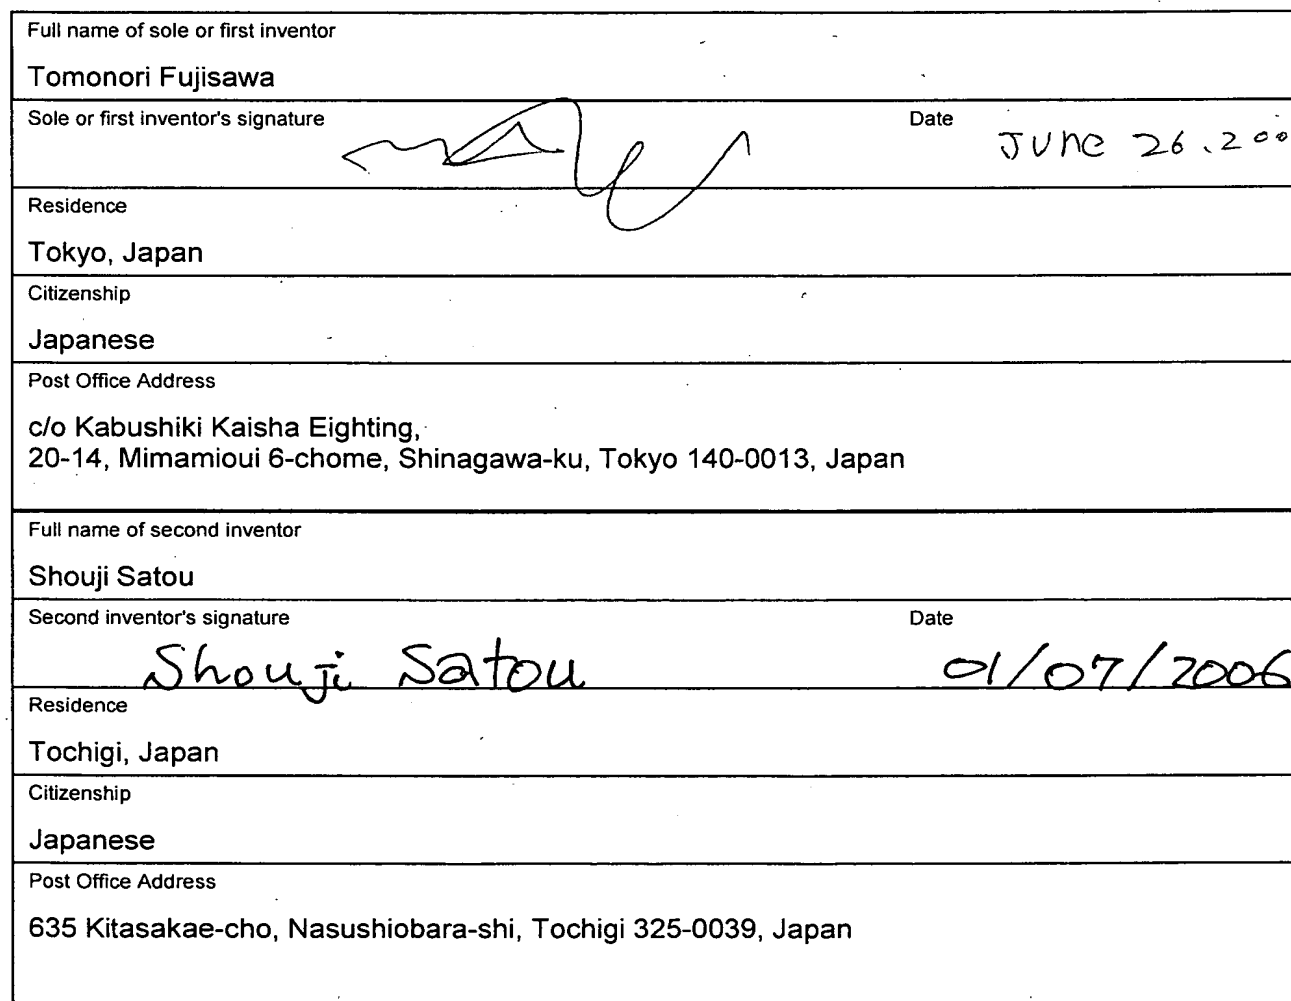 Full name of sole or first inventor
Tomonori Fujisawa
Sole or first inventor's signature
Date JUNE 26.200
Residence
Tokyo, Japan
Citizenship
Japanese
Post Office Address
c/o Kabushiki Kaisha Eighting,
20-14, Mimamioui 6-chome, Shinagawa-ku, Tokyo 140-0013, Japan
Full name of second inventor
Shouji Satou
Second inventor's signature Date
Shouji Satou 01/07/2006
Residence
Tochigi, Japan
Citizenship
Japanese
Post Office Address
635 Kitasakae-cho, Nasushiobara-shi, Tochigi 325-0039, Japan